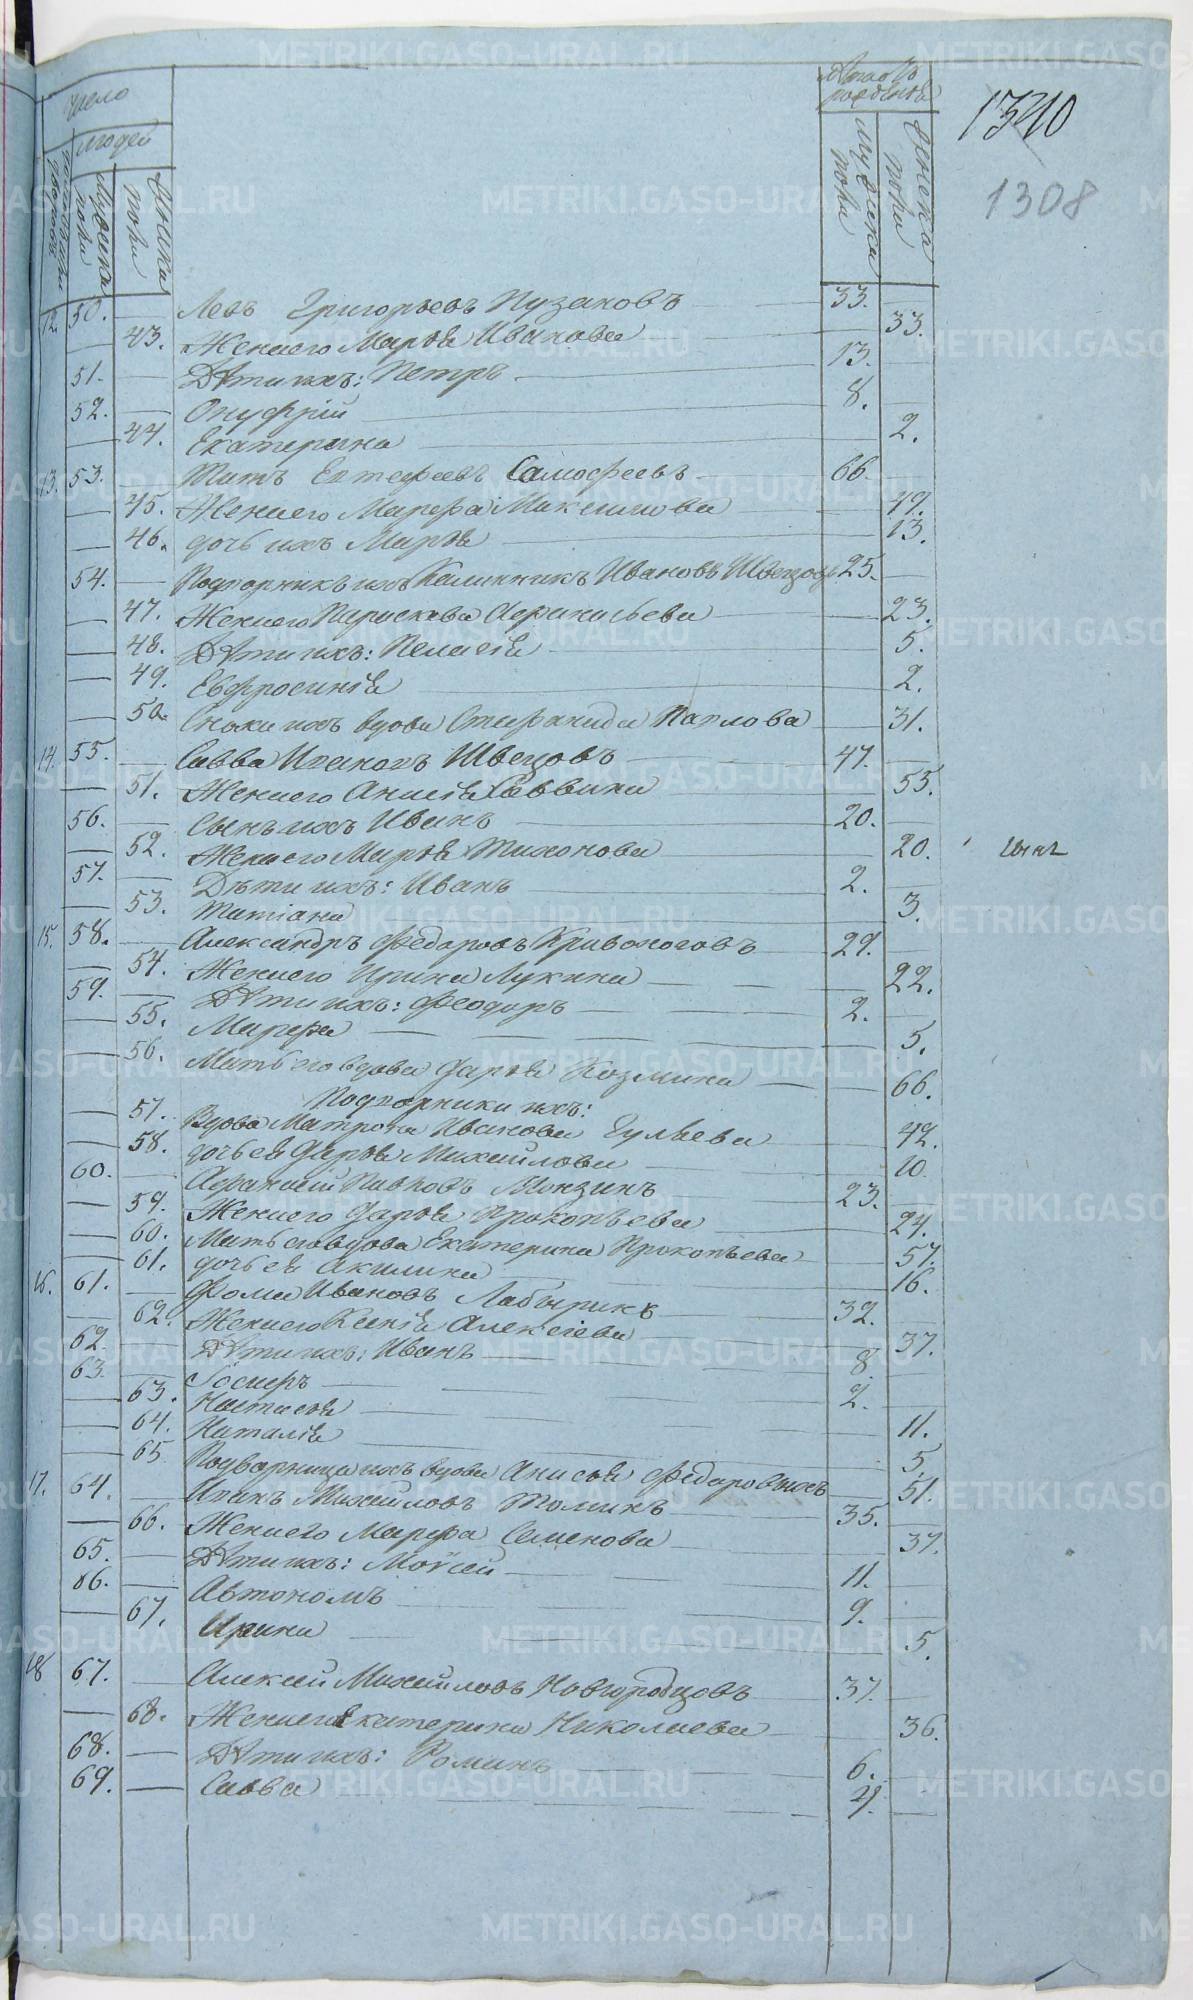 Число
людей
Лѣта отъ
рожденія
домовъ или дворовъ
Мужска полу
Женска полу
Мужска полу
Женска полу
1310
1308
12. 50. Левъ Григорьевъ Пузановъ 33.
43. Жена его Марѳа Иванова 33.
51. Дѣти ихъ: Петръ 13.
52. Онуфрій 8.
44. Екатерина 2.
13. 53. Титъ Самофеевъ 66.
45. Жена его Марфа Максимова 49.
46. дочь ихъ Марья 13.
54. Подворникъ ихъ Каллинникъ Ивановъ Швецовъ 25.
47. Жена его Параскева Афанасьева 23.
48. Дѣти ихъ: Пелагія 5.
49. Евфросинія 2.
50. Сноха ихъ вдова Стефанида Павлова 31.
14. 55. Савва Ивановъ Швецовъ 47.
51. Жена его Анисія Саввина 55.
56. Сынъ ихъ Иванъ 20.
52. Жена его Марья Тихонова 20.
57. Дѣти ихъ: Иванъ 2.
53. Татіана 3.
15. 58. Александръ Федоровъ Кривоноговъ 29.
54. Жена его Ирина Лукина 22.
59. Дѣти ихъ: Феодоръ 2.
55. Марфа 5.
56. Мать его вдова Дарья Козмина 66.
Подворники ихъ:
57. Вдова Матрона Иванова Гуляева 42.
58. дочь ея Дарья Михайлова 10.
60. Афанасій Павловъ Мокзинъ 23.
59. Жена его Дарья Прокопьева 24.
60. Мать его вдова Екатерина Прокопьева 57.
61. дочь ея Акилина 16.
16. 61. Фома Ивановъ Лабыринъ 32.
62. Жена его Ксенія Алексіева 37.
62. Дѣти ихъ: Иванъ 8.
63. Іосифъ 2.
63. Настасья 11.
64. Наталія 5.
65. Подворница ихъ вдова Анисья Федоровыхъ 51.
17. 64. Исакъ Михайловъ Томинъ 35.
66. Жена его Марфа Семенова 37.
65. Дѣти ихъ: Моѵсей 11.
66. Автономъ 9.
67. Ирина 5.
18 67. Алексей Михайловъ Новгородцовъ 37.
68. Жена его Екатерина Николаева 36.
68. Дѣти ихъ: Романъ 6.
69. Савва 4.